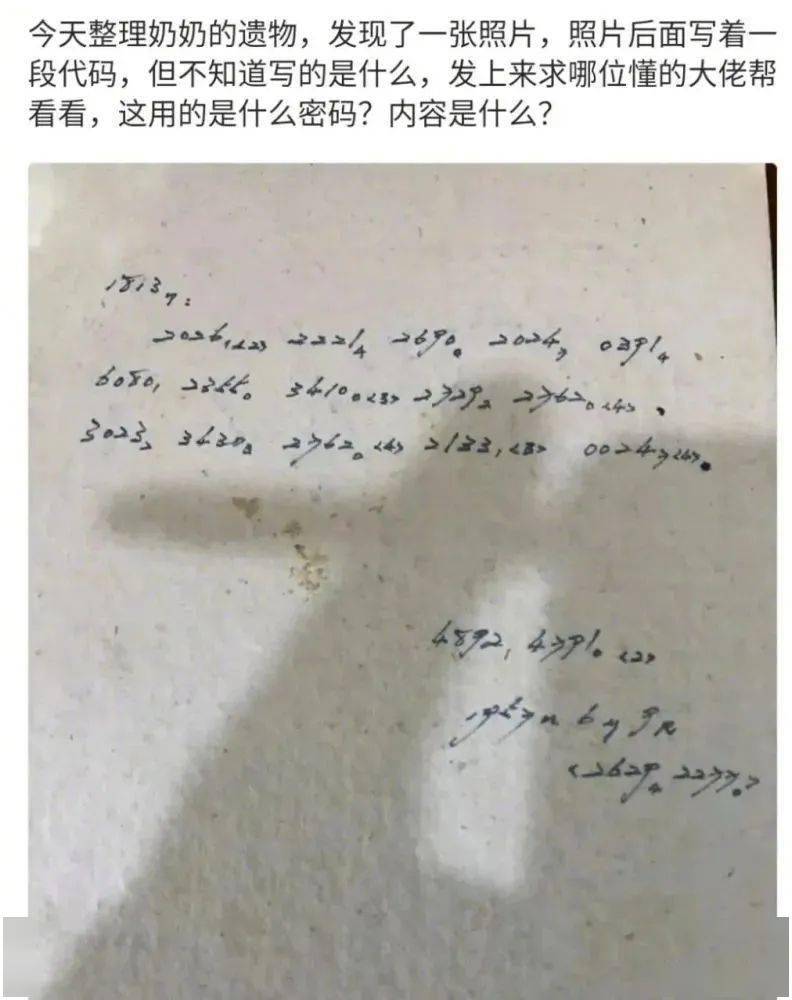 今天整理奶奶的遗物，发现了一张照片，照片后面写着一
段代码，但不知道写的是什么，发上来求哪位懂的大佬帮
看看，这用的是什么密码？内容是什么？
1813₇:
2026₁<2> 2221₄ 2690₀ 2024₇ 0391₄
6080₁ 3410₀<3> 2729₂ 2762₀<4>
3023₂ 3430₃ 2762₀<4> 2133₁<3> 0024₇<4>.
4892₁ 4791₀<2>
<2629₄ 2277₀>